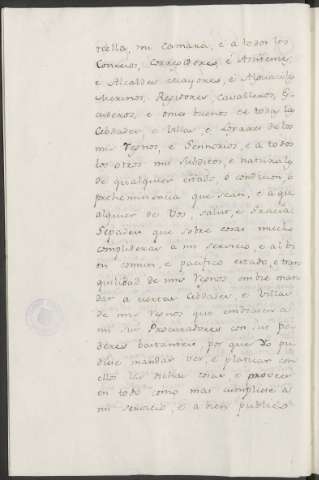 cilla, mi camara, e á todos los
Concejos, Corregidores, é Asistentes,
e Alcaldes mayores, é Alguaciles,
Merinos, Regidores, Cavalleros, Es-
cuderos, e omes buenos de todas las
Cibdades, e Villas, e Logares de los
mis Regnos, e Sennorios, e á todos
los otros mis subditos, e naturales
de qualquier estado, o condicion, o
prehemminencia que sean, e á qu-
alquier de Vos, salud, e Gracia:
Sepades que sobre cosas mucho
complideras á mi servicio, e al bi-
en comun, e pacifico estado, e tran-
quilidad de mis Regnos, embie man-
dar á ciertas Cibdades, e Villas
de mis Regnos que embiasen a
mi sus Procuradores con sus po-
deres bastantes, por que Yo pu-
diese mandar ver, e platicar con
ellos las dichas cosas, e proveer
en todo como mas cumpliese á
mi servicio, e á bien publico